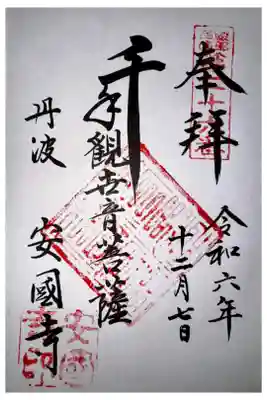 奉拝
令和六年
十二月七日
千手観世音菩薩
丹波
安國寺